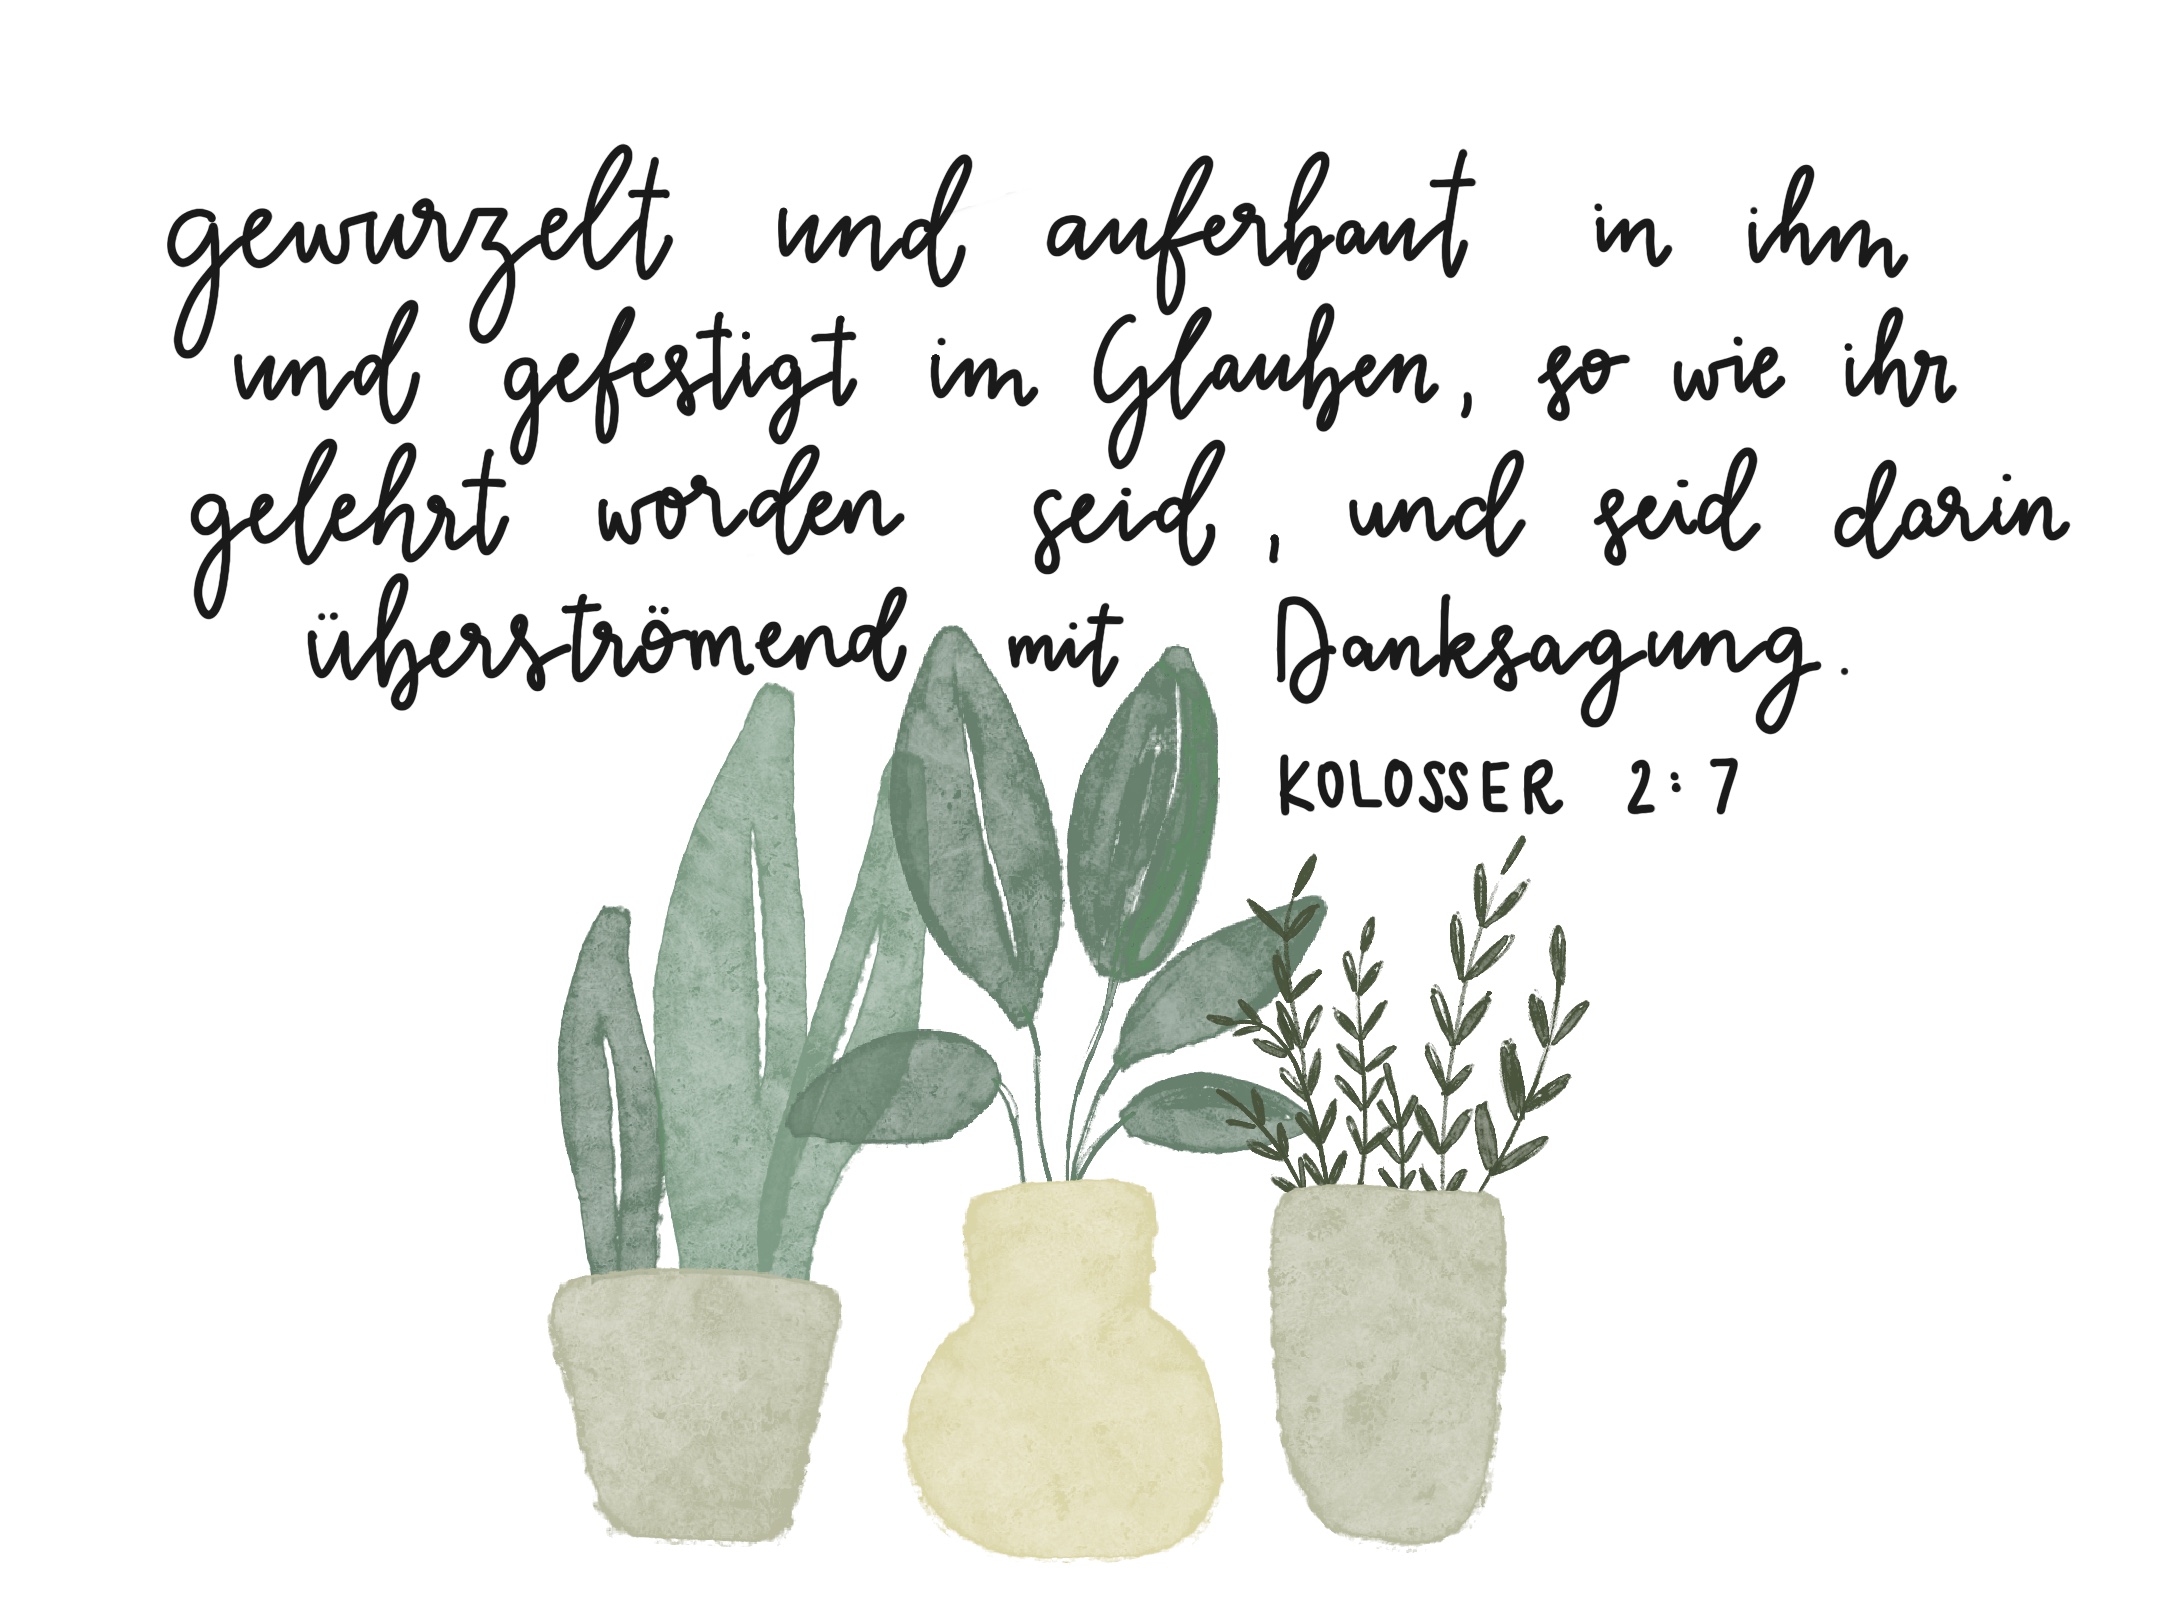 gewurzelt und auferbaut in ihm
und gefestigt im Glauben, so wie ihr
gelehrt worden seid, und seid darin
überströmend mit Danksagung.
KOLOSSER 2:7